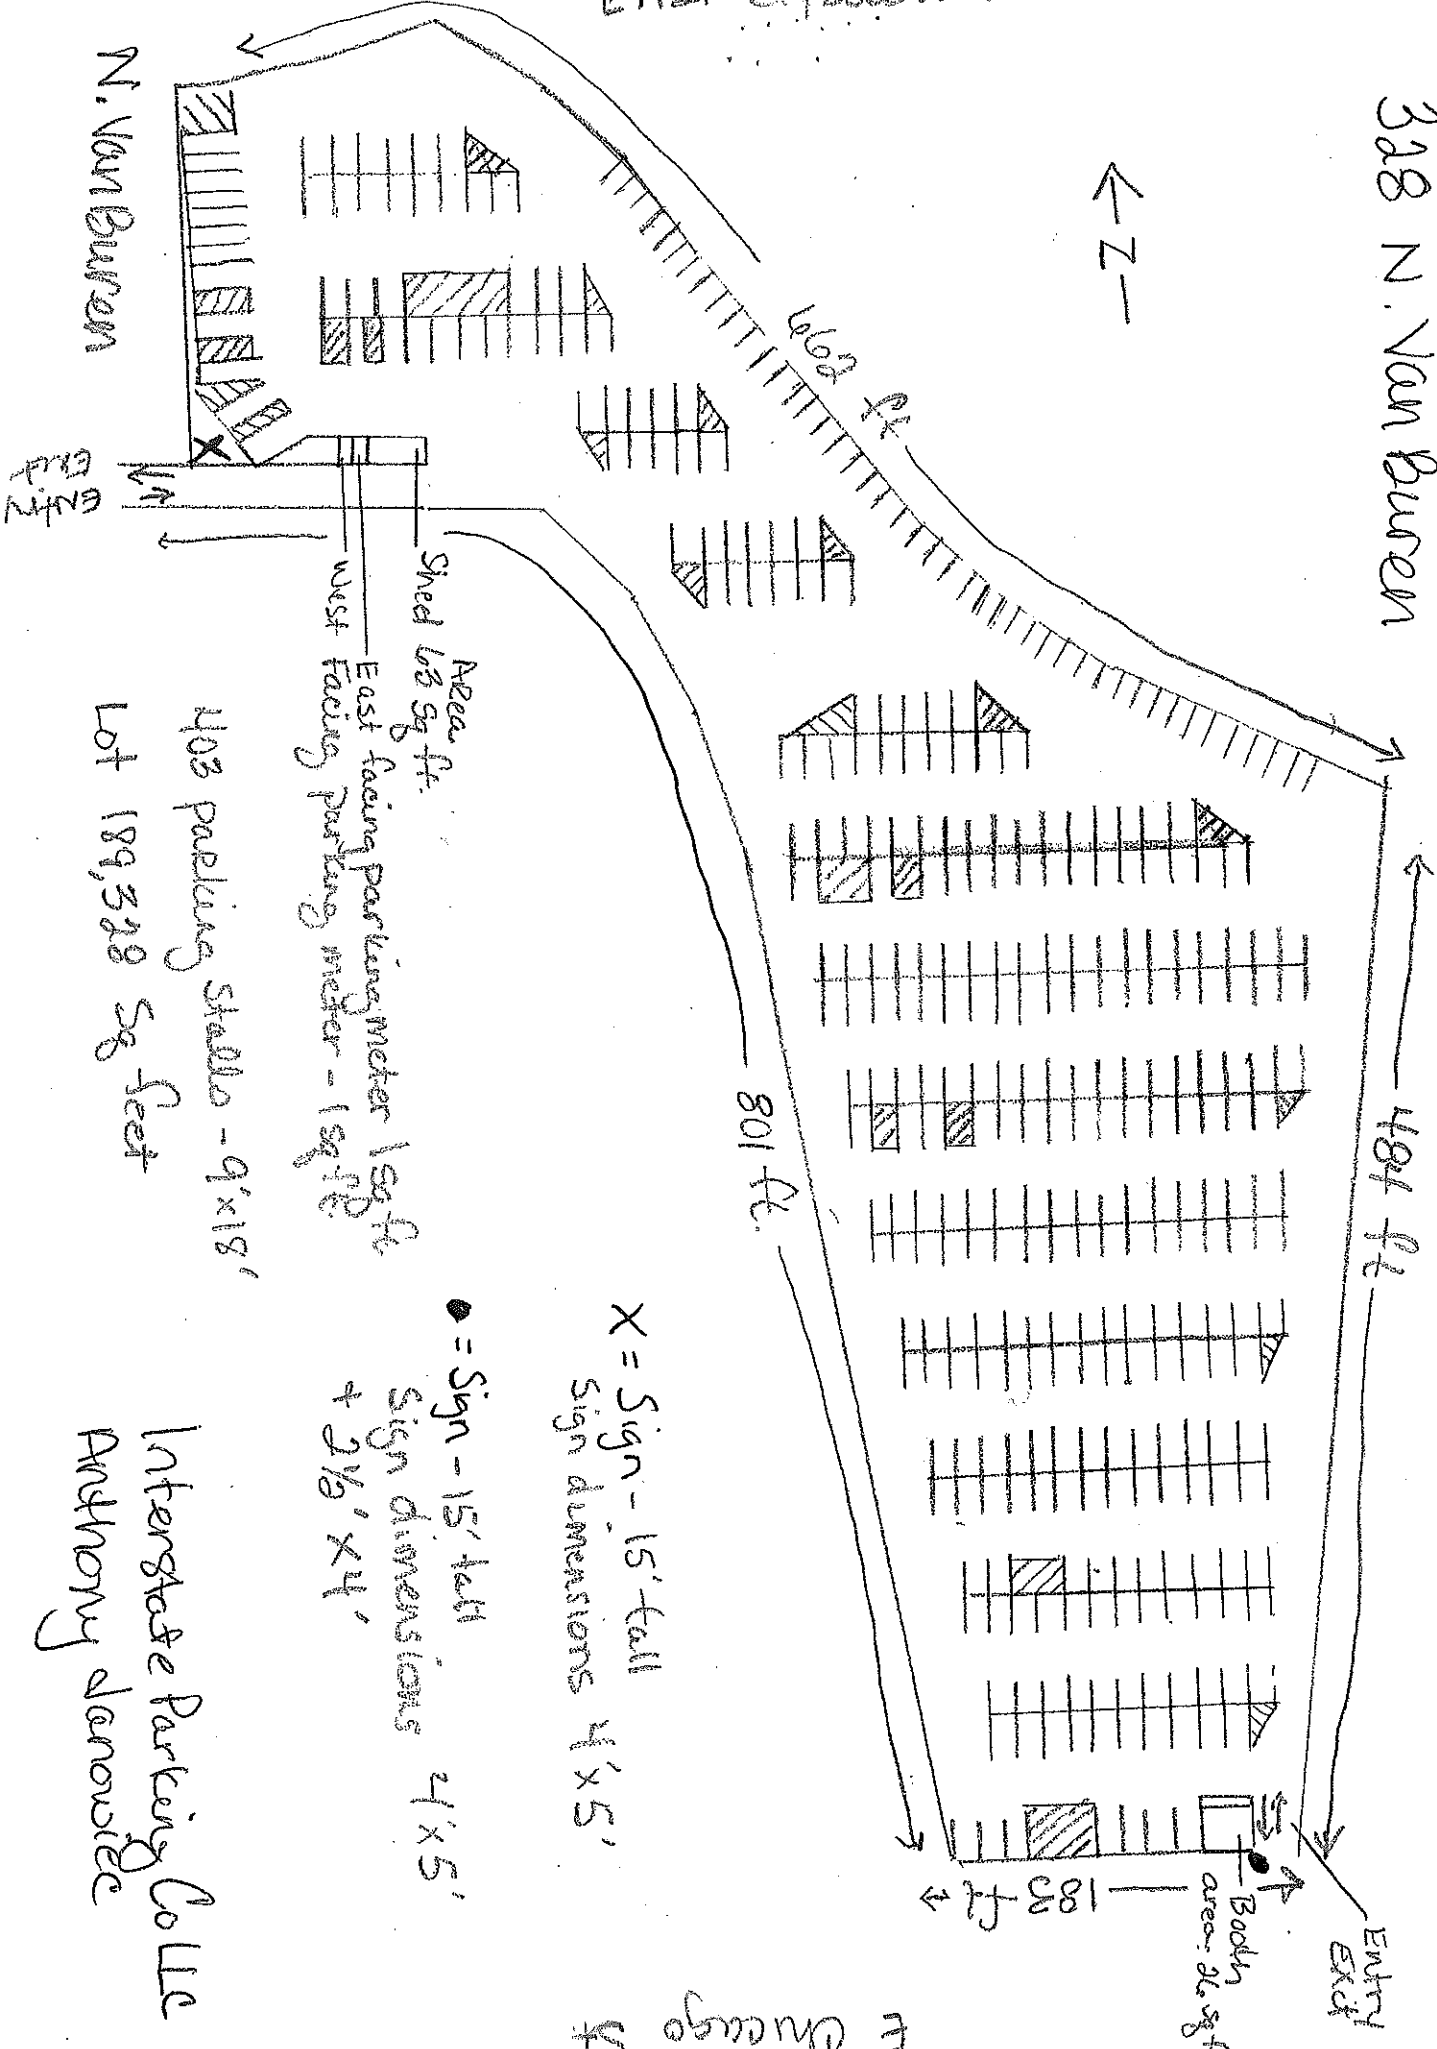 328 N. Van Buren
N
N. Van Buren
662 ft
484 ft
801 ft.
183 ft
Entry
Exit
Booth
area: 26 sq f
Entry
Exit
Area
Shed 63 sq ft.
East facing parking meter 1 sq ft
West Facing parking meter - 1 sq ft.
403 parking stalls - 9'x18'
Lot 189,328 Sq feet
X = Sign - 15' tall
Sign dimensions 4'x5'
● = Sign - 15' tall
Sign dimensions 4'x5'
+ 2½' x4'
E Chicago
Interstate Parking Co LLC
Anthony Janowiec